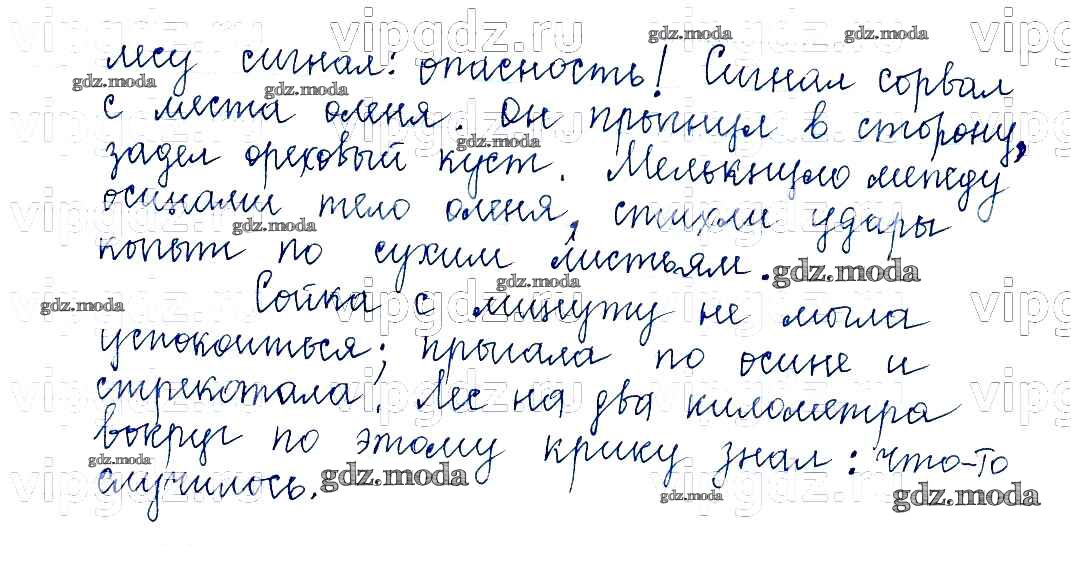 лесу сигнал: опасность! Сигнал сорвал
с места оленя. Он прыгнул в сторону,
задел ореховый куст. Мелькнуло между
осинами тело оленя, стихли удары
копыт по сухим листьям.
Сойка с минуту не могла
успокоиться; прыгала по осине и
стрекотала. Лес на два километра
вокруг по этому крику знал: что-то
случилось.
vipgdz.ru
gdz.moda